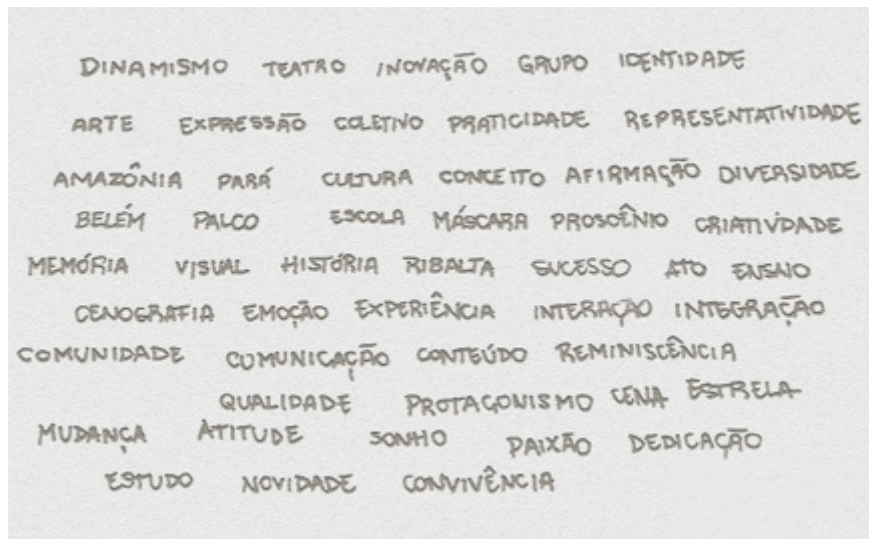 DINAMISMO TEATRO INOVAÇÃO GRUPO IDENTIDADE
ARTE EXPRESSÃO COLETIVO PRATICIDADE REPRESENTATIVIDADE
AMAZÔNIA PARÁ CULTURA CONCEITO AFIRMAÇÃO DIVERSIDADE
BELÉM PALCO ESCOLA MÁSCARA PROSCÊNIO CRIATIVIDADE
MEMÓRIA VISUAL HISTÓRIA RIBALTA SUCESSO ATO ENSINO
CENOGRAFIA EMOÇÃO EXPERIÊNCIA INTERAÇÃO INTEGRAÇÃO
COMUNIDADE COMUNICAÇÃO CONTEÚDO REMINISCÊNCIA
QUALIDADE PROTAGONISMO CENA ESTRELA
MUDANÇA ATITUDE SONHO PAIXÃO DEDICAÇÃO
ESTUDO NOVIDADE CONVIVÊNCIA